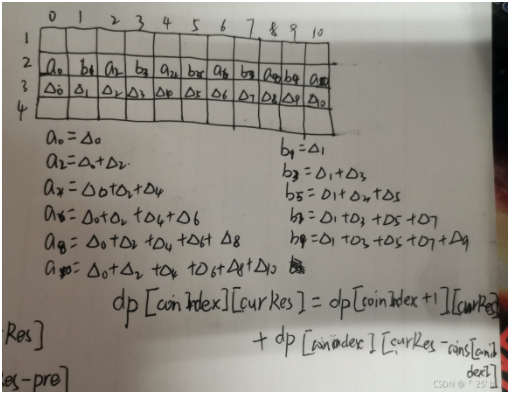 0 1 2 3 4 5 6 7 8 9 10
1
2 a₀ b₁ a₂ b₃ a₄ b₅ a₆ b₇ a₈ b₉ a₁₀
3 Δ₀ Δ₁ Δ₂ Δ₃ Δ₄ Δ₅ Δ₆ Δ₇ Δ₈ Δ₉ Δ₁₀
4
a₀ = Δ₀
a₂ = Δ₀+Δ₂
a₄ = Δ₀+Δ₂+Δ₄
a₆ = Δ₀+Δ₂+Δ₄+Δ6
a₈ = Δ₀+Δ₂+Δ₄+Δ6+Δ8
a₁₀ = Δ₀+Δ₂+Δ₄+Δ6+Δ8+Δ10
b₁ = Δ₁
b₃ = Δ₁+Δ₃
b5 = Δ1+Δ5
b₇ = Δ1+Δ3+Δ5+Δ7
b₉ = Δ1+Δ3+Δ5+Δ7+Δ9
dp[coinIndex][curRes] = dp[coinIndex+1][curRes]
+ dp[coinindex][curRes-coins[coinIndex]]
Res]
es-pre]
CSDN @